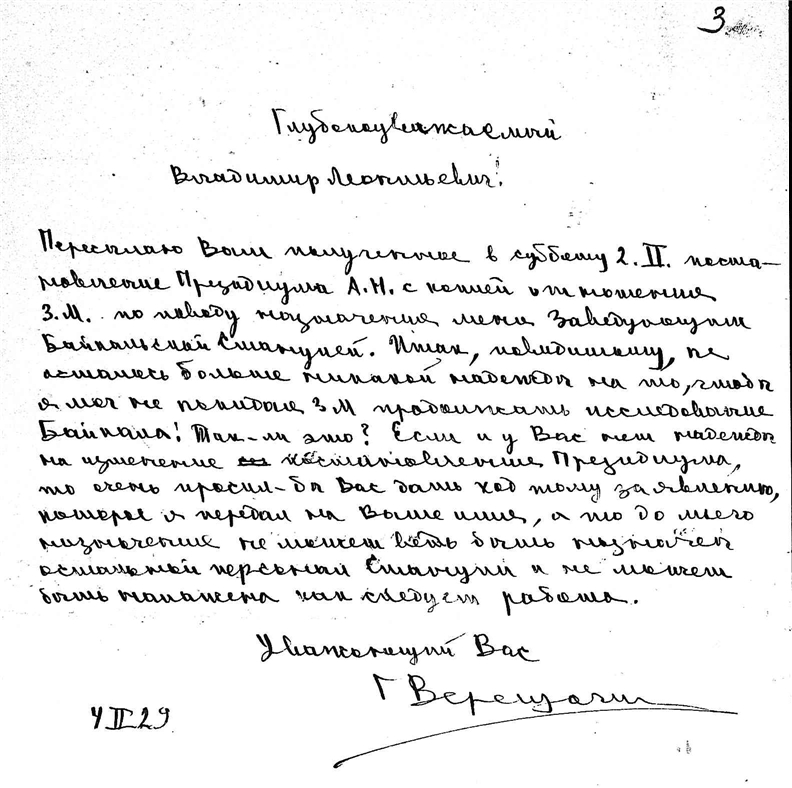 3
Глубокоуважаемый
Владимир Леонтьевич!
Пересылаю Вам полученное в субботу 2.II. поста-
новление Президиума А.Н. с копией отношения
З.М. по поводу назначения меня Заведующим
Байкальской Станцией. Итак, повидимому, не
осталось больше никакой надежды на то, чтобы
я мог не покидая ЗМ продолжать исследование
Байкала! Так-ли это? Если и у Вас нет надежды
на изменение постановления Президиума,
то очень просил-бы Вас дать ход тому заявлению,
которое я передал на Ваше имя, а то до моего
назначения не может ведь быть назначен
остальной персонал Станции и не может
быть налажена как следует работа.
Уважающий Вас
Г Верещагин
4 II 29